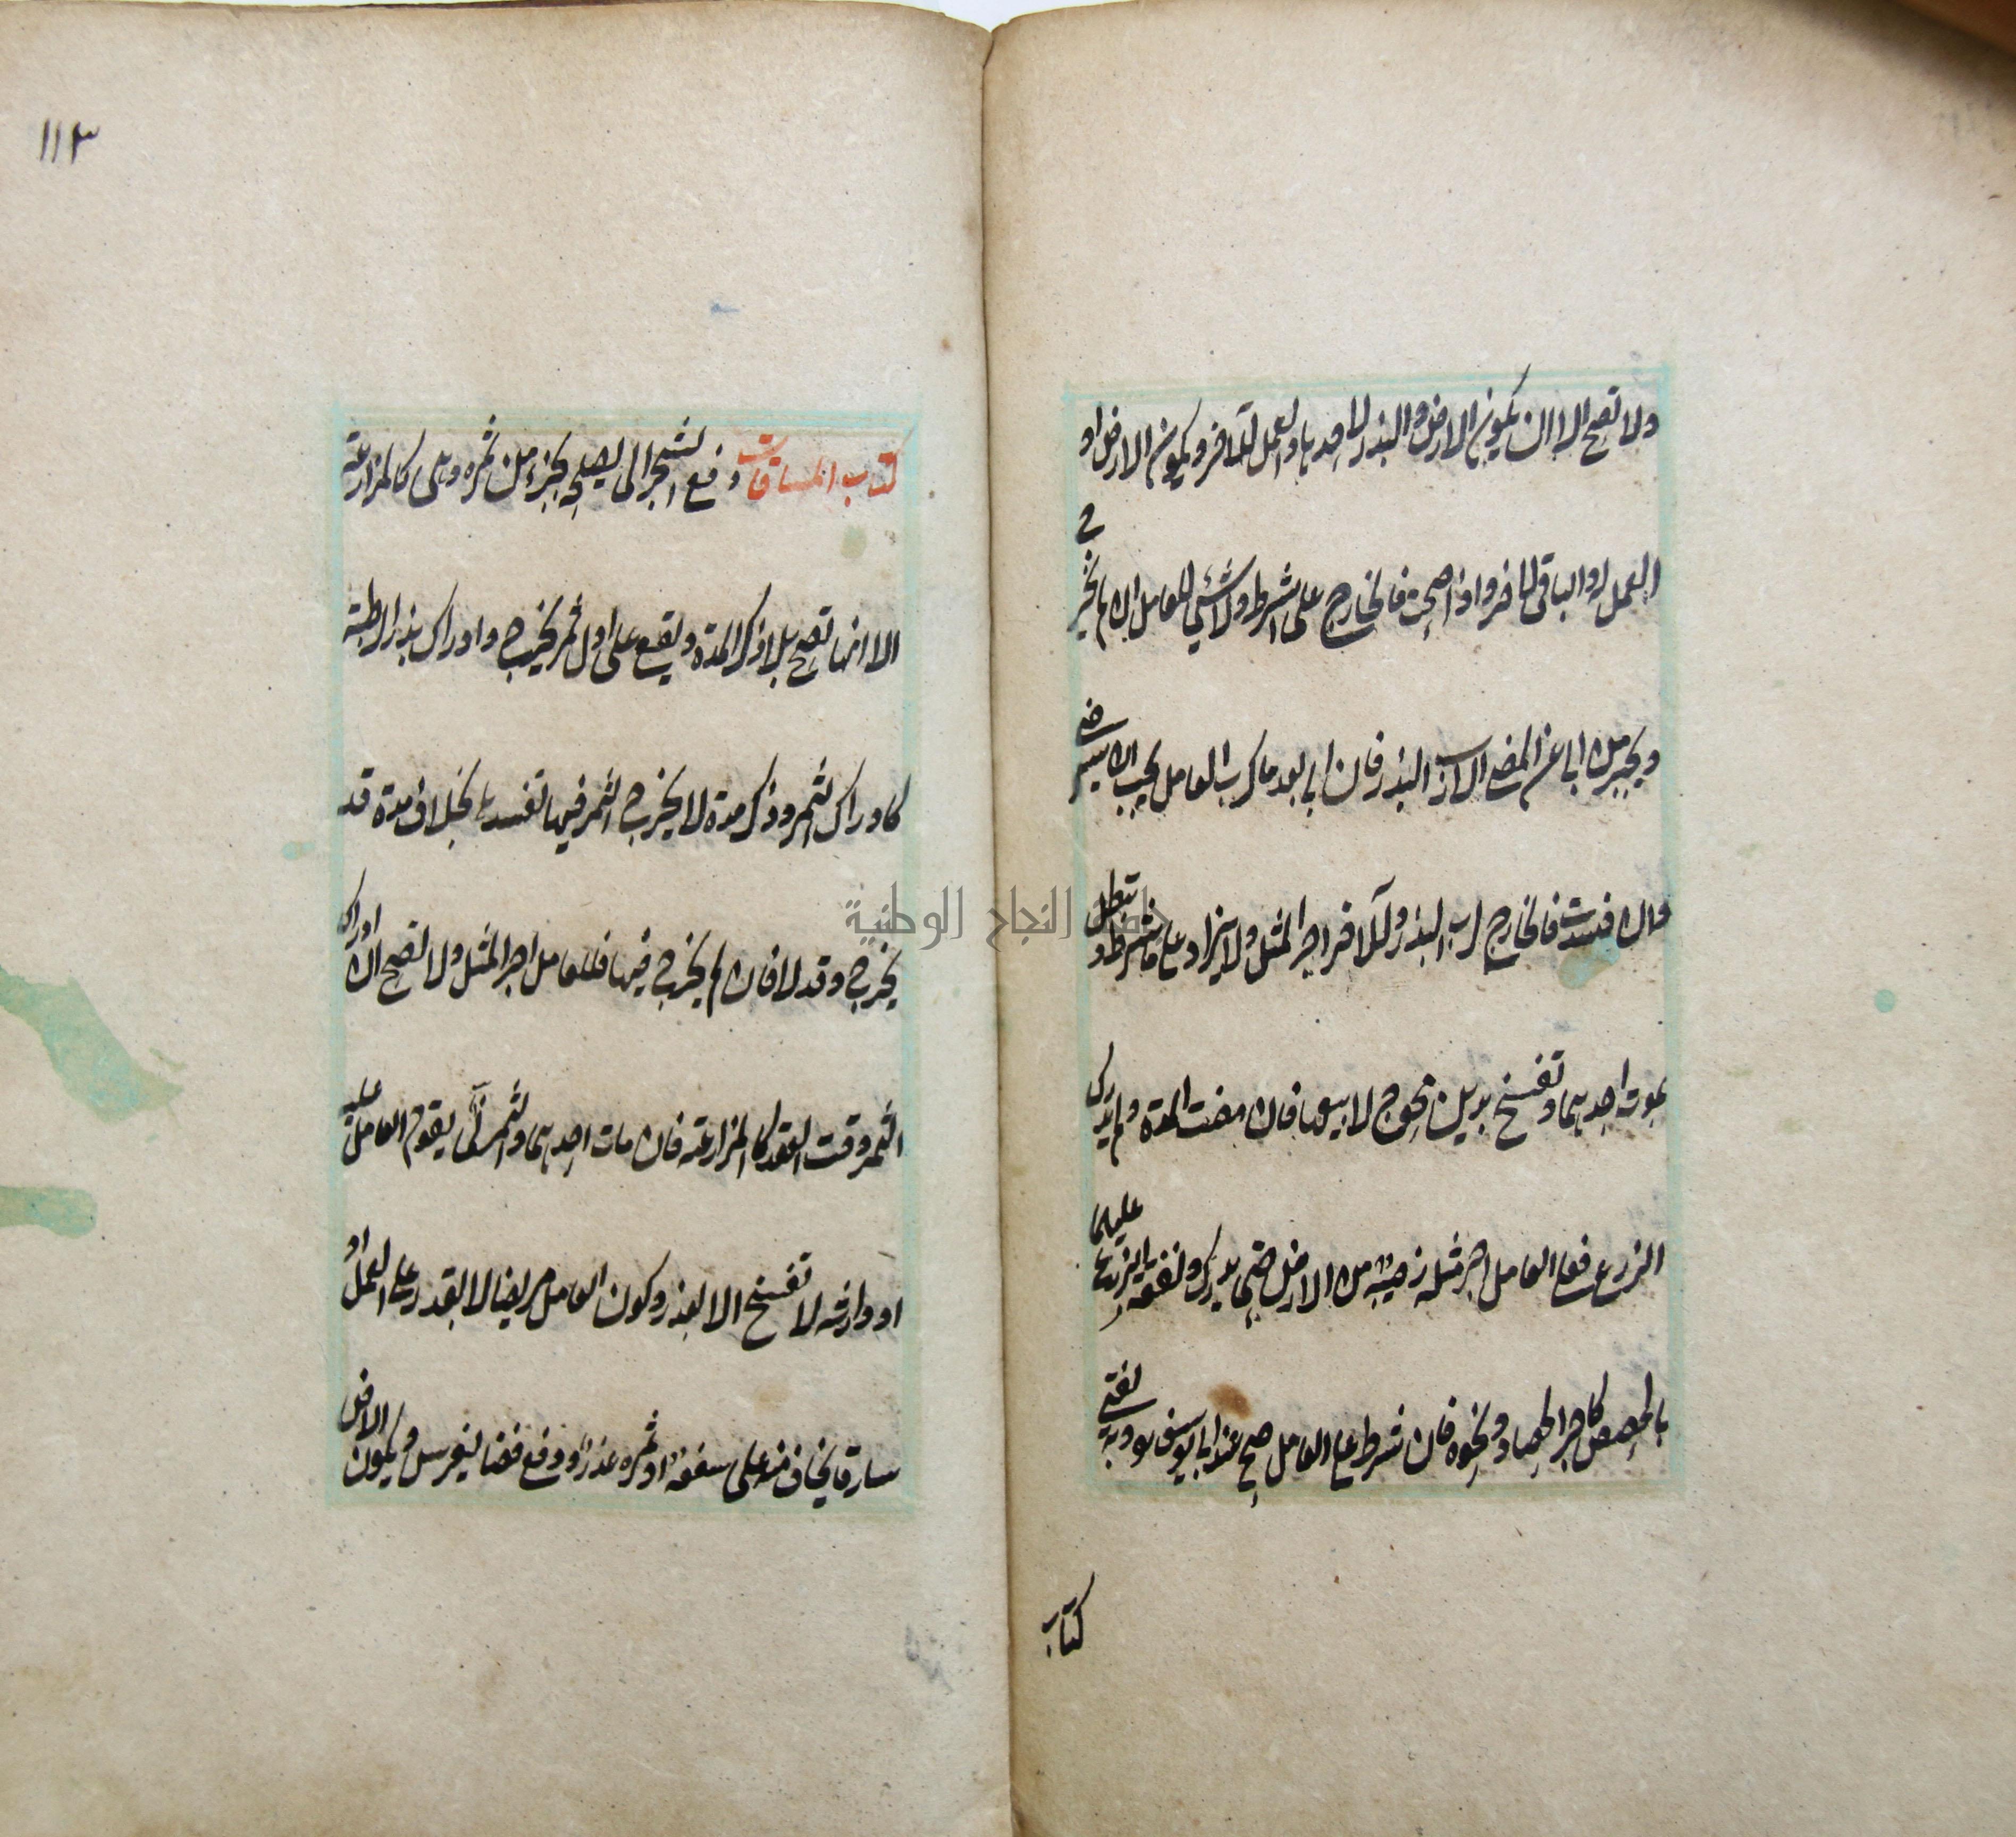 ولا تصح الا ان يكون الارض والبذر لاحدهما والعمل للآخر ويكون الارض او
العمل له والباقى للآخر واذا صحت فالخارج على الشرط ولا شئ للعامل ان لم يخرج
ويجبر من ابا عن المضى الا رب البذر فان ابى بعد ما كرب العامل يجب ان يسترضى
وان فسدت فالخارج لرب البذر وللآخر اجر المثل ولا يزاد على ما شرط وتبطل
بموت احدهما وتفسخ بدين محوج لا بيعها فان مضت المدة ولم يدرك
الزرع فعلى العامل اجر مثل نصيبه من الارض حتى يدرك ونفقة الزرع عليهما
بالحصص كاجر الحصاد ونحوه فان شرط على العامل صح عند ابى يوسف وبه يفتى
كتاب
١١٣
كتاب المساقات دفع الشجر الى يصلحه بجزء من ثمره وهى كالمزارعة
الا انها تصح بلا ذكر المدة ويقع على اول ثمر يخرج وادراك بذر الرطبة
كادراك الثمر وذكر مدة لا يخرج الثمر فيها تفسدها بخلاف مدة قد
يخرج وقد لا فان لم يخرج فيها فللعامل اجر المثل ولا تصح ان ادرك
الثمر وقت العقد كالمزارعة فان مات احدهما والثمر نئ يقوم العامل عليه
او وارثه لا تفسخ الا بعذر وكون العامل مريضا لا يقدر على العمل او
سارقا يخاف منه على سعفه او ثمره عذر ودفع فضا ليغرس ويكون الارض
جامعة النجاح الوطنية